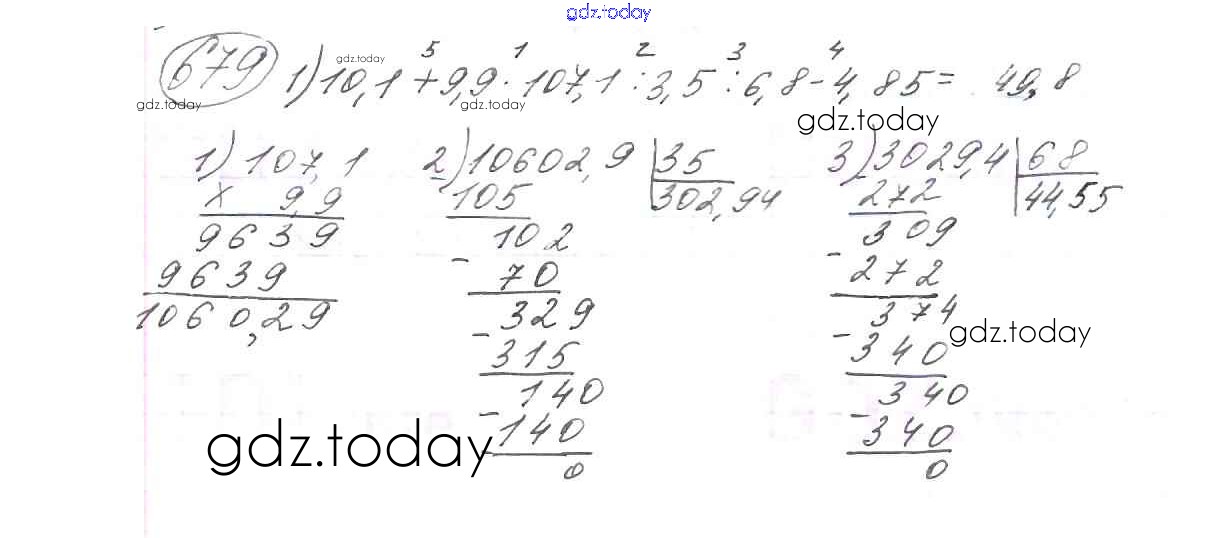 gdz.today
679 1) 10,1 + 9,9 · 107,1 : 3,5 : 6,8 - 4,85 = 49,8
5 1 2 3 4
gdz.today
gdz.today
gdz.today
gdz.today
1) 107,1
× 9,9
9639
9639
1060,29
2) 10602,9 | 35
105 302,94
102
- 70
329
- 315
140
- 140
0
3) 3029,4 | 68
272 44,55
309
- 272
374
- 340
340
- 340
0
gdz.today
gdz.today